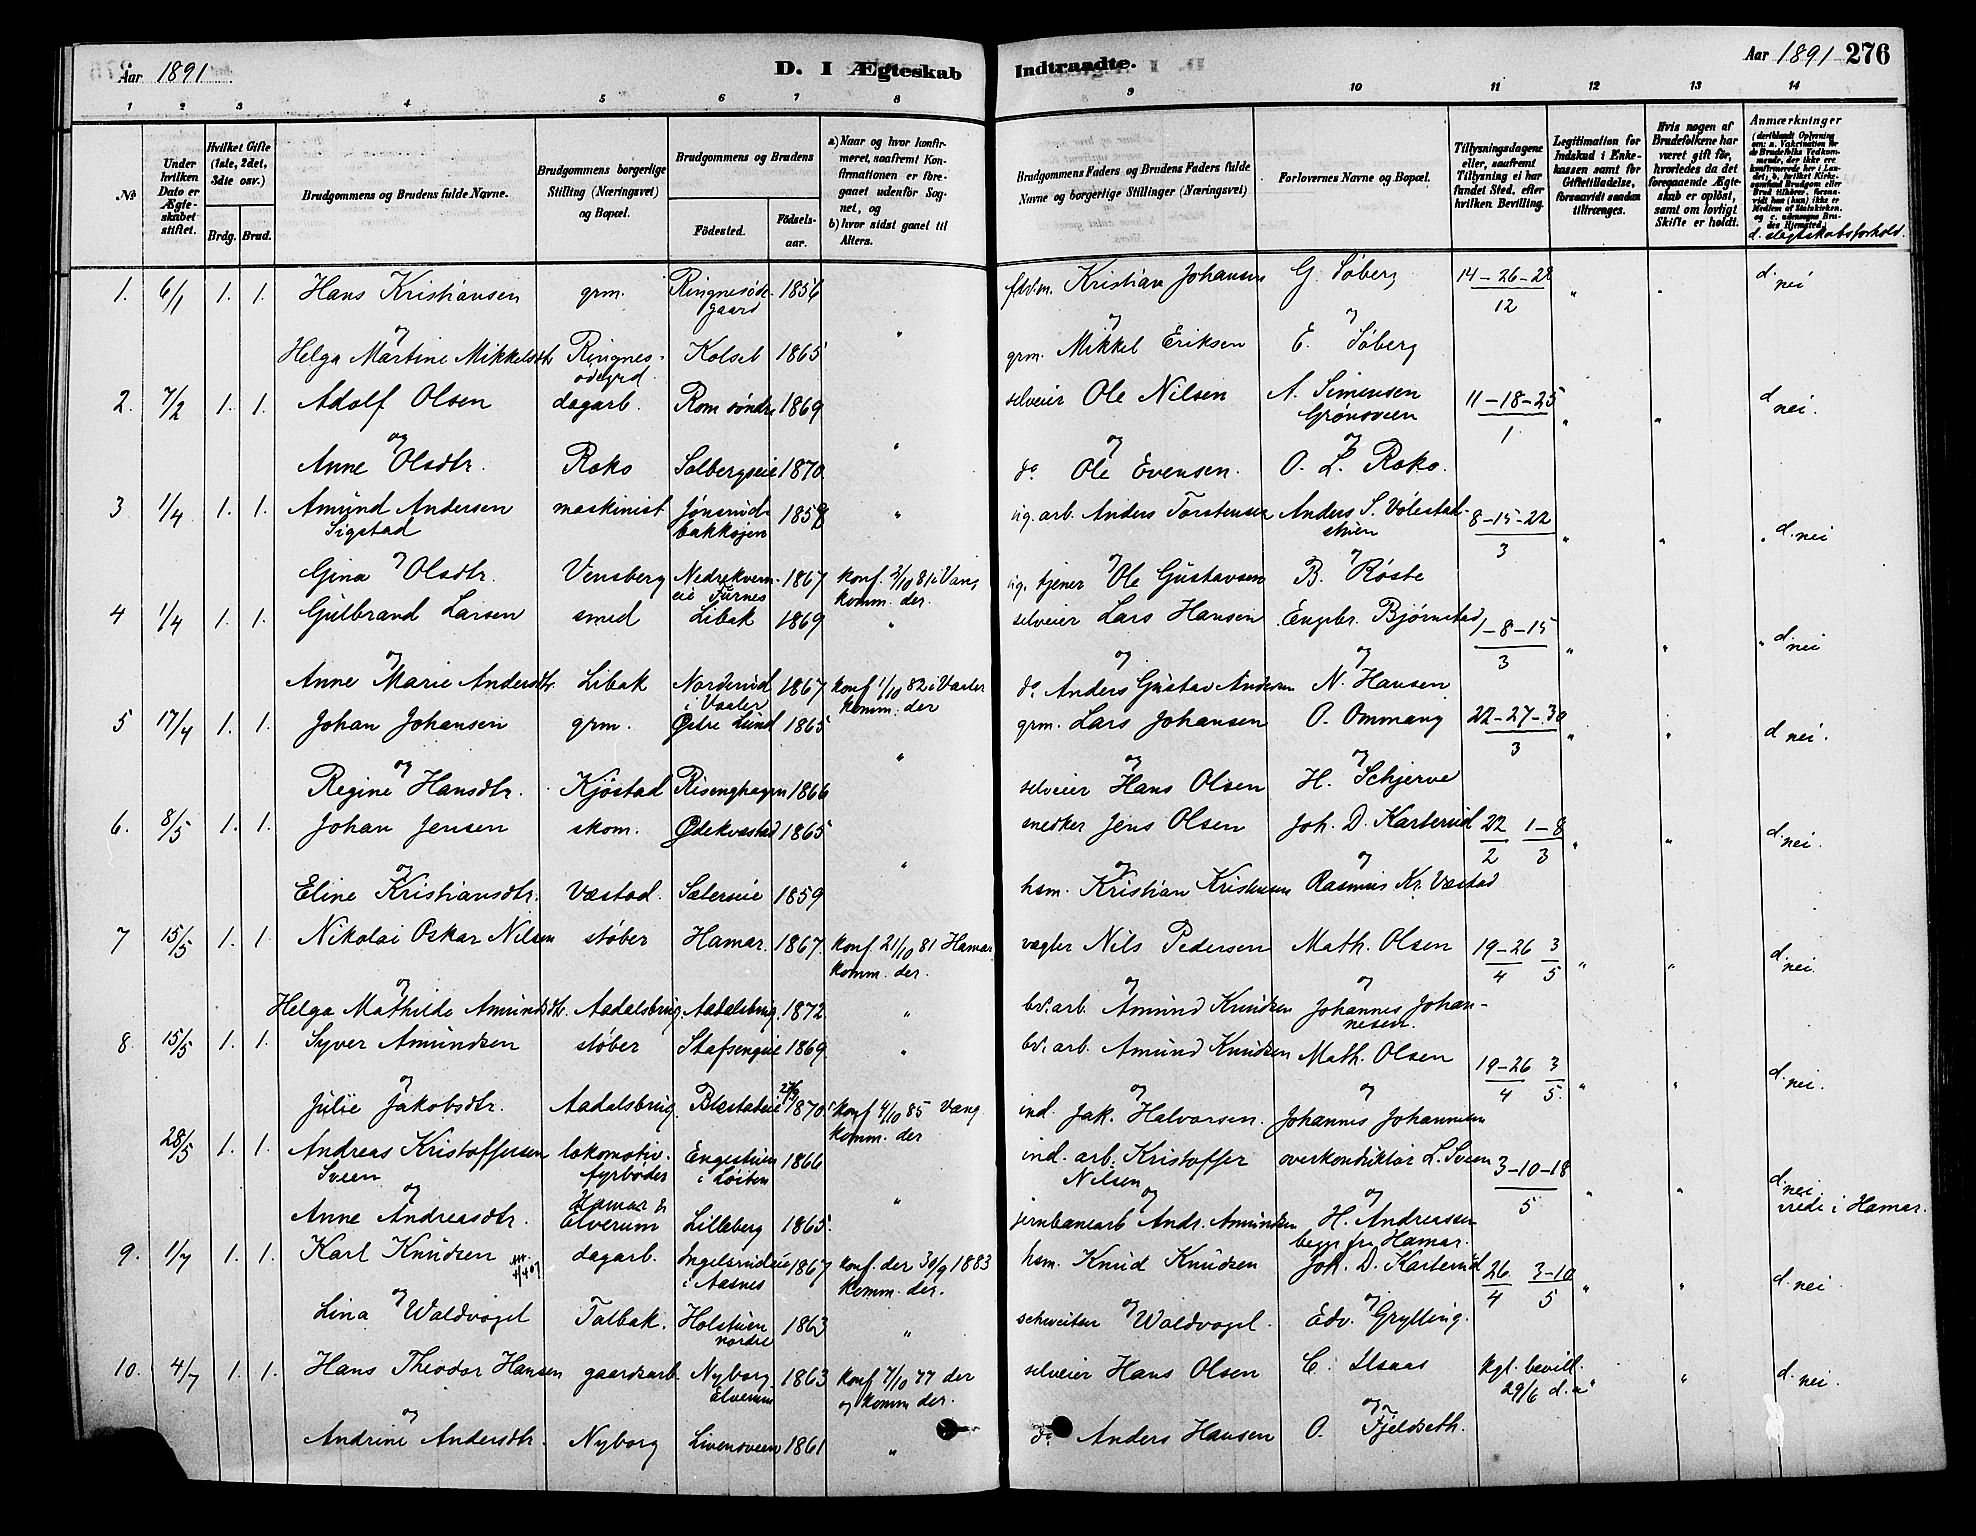 Aar 1891
D. I Ægteskab Indtraadte.
Aar 1891 276
1 2 3 4 5 6 7 8 9 10 11 12 13 14
№
Under hvilken Dato er Ægteskabet stiftet.
Hvilket Gifte (1ste, 2det, 3die osv.)
Brdg. Brud.
Brudgommens og Brudens fulde Navne.
Brudgommens borgerlige Stilling (Næringsvei) og Bopæl.
Brudgommens og Brudens
Födested.
Födselsaar.
a) Naar og hvor konfirmeret, saafremt Konfirmationen er foregaaet udenför Sognet, og
b) hvor sidst ganet til Alters.
Brudgommens Faders og Brudens Faders fulde Navne og borgerlige Stillinger (Næringsvei)
Forlovernes Navne og Bopæl.
Tillysningsdagene eller, saafremt Tillysning ei har fundet Sted, efter hvilken Bevilling.
Legitimation for Indskud i Enkekassen samt for Giftetilladelse, forsaavidt saadan tiltrænges.
Hvis nogen af Brudefolkene har været gift för, hvorledes da det foregaaende Ægteskab er oplöst, samt om lovligt Skifte er holdt.
Anmærkninger
d. slegtskabsforhold.
1. 6/1 1. 1. Hans Kristiansen grm. Ringnesödegaard 1856 fhv. m. Kristian Johansen G. Söberg 14-26-28/12 " " d. nei
og " og og
Helga Martine Mikkelsdtr. Ringnesödegrd. Kolset 1865 grm. Mikkel Eriksen E. Söberg
2. 7/2 1. 1. Adolf Olsen dagarb. Rom söndre 1869 selveier Ole Nilsen A. Simensen Grönsveen 11-18-25/1 " " d. nei
og " og og
Anne Olsdtr. Roko Solbergseie 1870 do. Ole Evensen. O. L. Roko.
3 1/4 1. 1. Amund Andersen Sigstad maskinist Jönsrudbakköjen 1858 " sig. arb. Anders Torstensen Anders S. Völestadstuen 8-15-22/3 " " d. nei
og og og
Gina Olsdtr. Vensberg Nedrekverneie Furnes 1867 konf. 2/10 81 i Vang komm. der. tjener Ole Gustavsen B. Röste
4 1/4 1. 1. Gulbrand Larsen smed Libak 1869 " selveier Lars Hansen Engebr. Björnstad 1-8-15/3 " " d. nei
og og og
Anne Marie Andersdtr. Libak Norderud i Vaaler 1867 konf. 1/10 82 i Vaaler komm. der do. Anders Gustav Andersen N. Hansen
5 17/4 1. 1. Johan Johansen grm. Östre Lund 1865 grm. Lars Johansen O. Ommang 22-27-30/3 " " d. nei.
og " og og
Regine Hansdtr. Kjöstad Risenghagen 1866 selveier Hans Olsen H. Schjerve
6. 8/5 1. 1. Johan Jensen skom. Ödekvæstad 1865 snedker Jens Olsen Joh. D. Karterud 22/2 1-8/3 " " d. nei.
og " og og
Eline Kristiansdtr. Væstad. Sæterseie 1859 hsm. Kristian Kristensen Rasmus Kr. Væstad
7 15/5 1. 1. Nikolai Oskar Nilsen stöber Hamar. 1867. konf. 21/10 81 Hamar komm. der. vægter Nils Pedersen Math. Olsen 19-26/4 3/5 " " d. nei.
og og og
Helga Mathilde Amundsdtr. Aadalsbrug Aadalsbrug 1872 " bv. arb. Amund Knudsen Johannes Johannesen.
8. 15/5 1. 1. Syver Amundsen stöber Stafsengeie 1869 " bv. arb. Amund Knudsen Math. Olsen 19-26/4 3/5. " " d. nei.
og og og
Julie Jakobsdtr. Aadalsbrug Blæstadeie 1870 konf 4/10 85 Vang komm. der ind. Jak. Halvorsen. Johannes Johannesen
28/5 1. 1. Andreas Kristoffersen Sveen lokomotivfyrböder Engestuen i Löiten 1866 ind. arb. Kristoffer Nilsen overkonduktör L. Sveen 3-10-18/5 " " d. nei
og Hamar & " og og viede i Hamar.
Anne Andreasdtr. Elverum Lilleberg 1865. jernbanearb Andr. Amundsen H. Andreassen begge fra Hamar.
9. 1/7 1. 1. Karl Knudsen dagarb. Ingelsrudeie i Aasnes 1867 konf. der 30/9 1883 komm. der. hsm. Knud Knudsen Joh. D. Karterud 26/4 3-10/5 " " d. nei
og og og
Lina Waldvogel Talbak. Holstuen nordre 1863 " schweitser Waldvogel. Edv. Grylling.
10. 4/7 1. 1. Hans Theodor Hansen gaardsarb. Nyborg Elverum 1863 konf 7/10 77 der og komm der. selveier Hans Olsen C. Ilsaas kgl. bevill. 29/6 d. a. " " d. nei.
og og
Andrine Andersdtr. Nyborg Livensveen 1861 " do. Anders Hansen O. Fjeldseth.